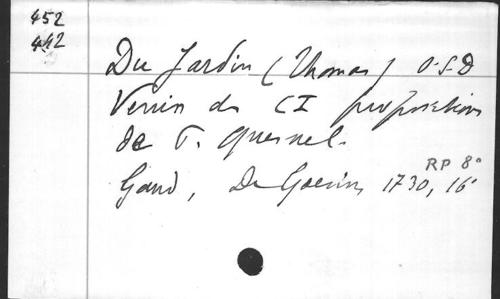 452
442
Du Jardin (Thomas) O.S.D
Venin des CI propositions
de P. Quesnel.
RP 8°
Gand, De Goesin, 1730, 16°